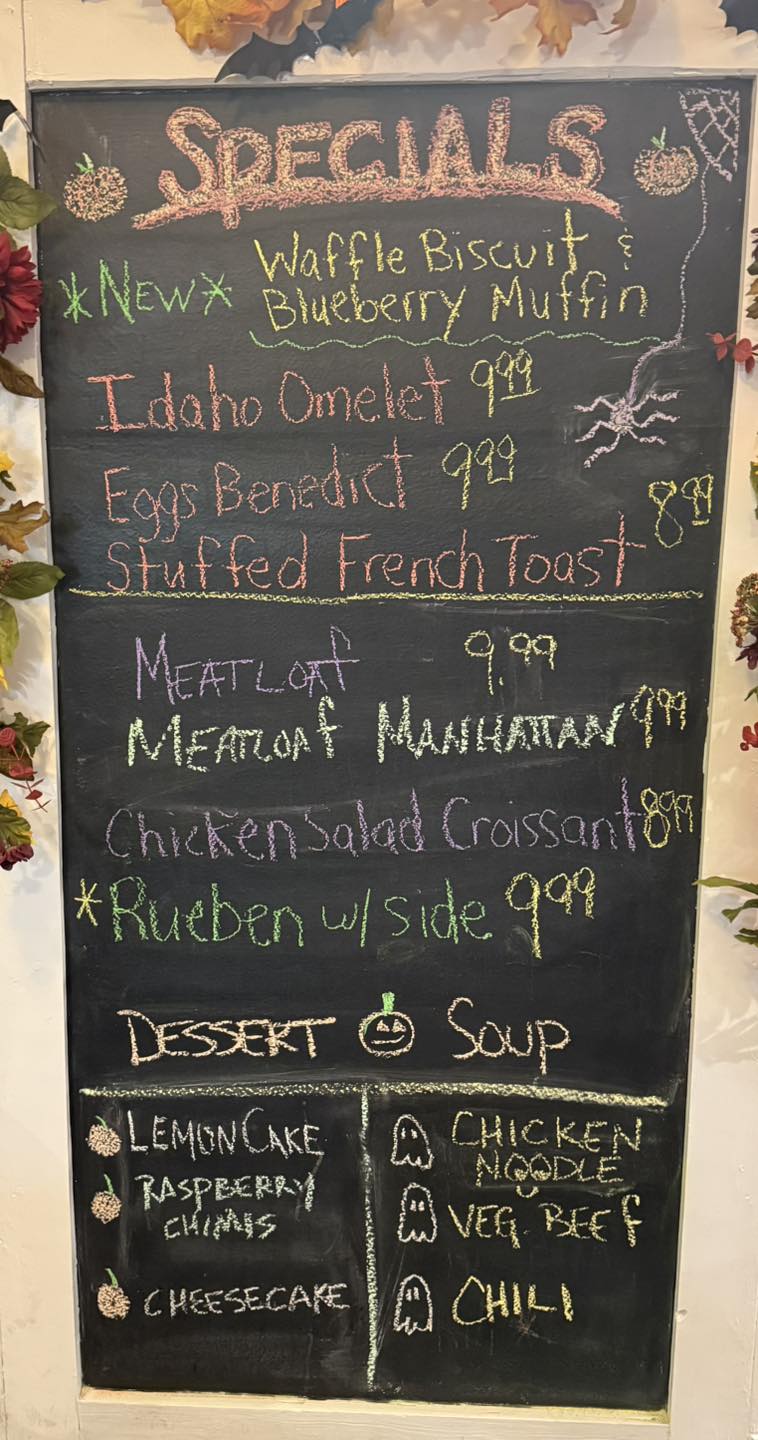 SPECIALS
*NEW* Waffle Biscuit &
Blueberry Muffin
Idaho Omelet 9.99
Eggs Benedict 9.99
Stuffed French Toast 8.99
MEATLOAf 9.99
MEATLOAf MANHATTAN 9.99
Chicken Salad Croissant 8.99
*Rueben w/ side 9.99
DESSERT SOUP
LEMON CAKE
RASPBERRY
CHIMIS
CHEESECAKE
CHICKEN
NOODLE
VEG. BEEf
CHILI